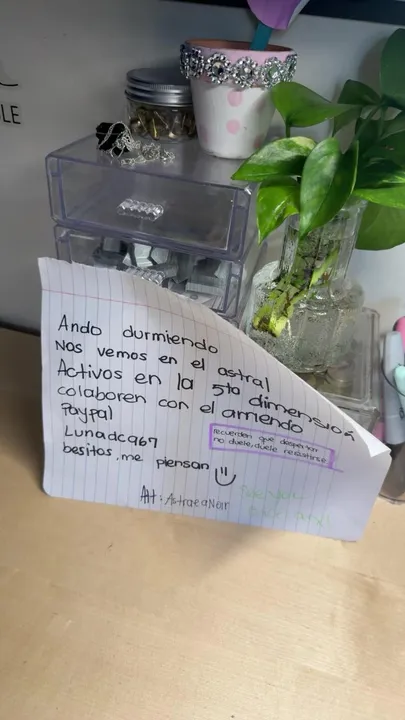 LE
Ando durmiendo
Nos vemos en el astral
Activos en la 5to dimensión
colaboren con el arriendo
Paypal
recuerden que despertar
no duele, duele resistirse
Lunadca67
besitos, me piensan
Att: AstraeaNair